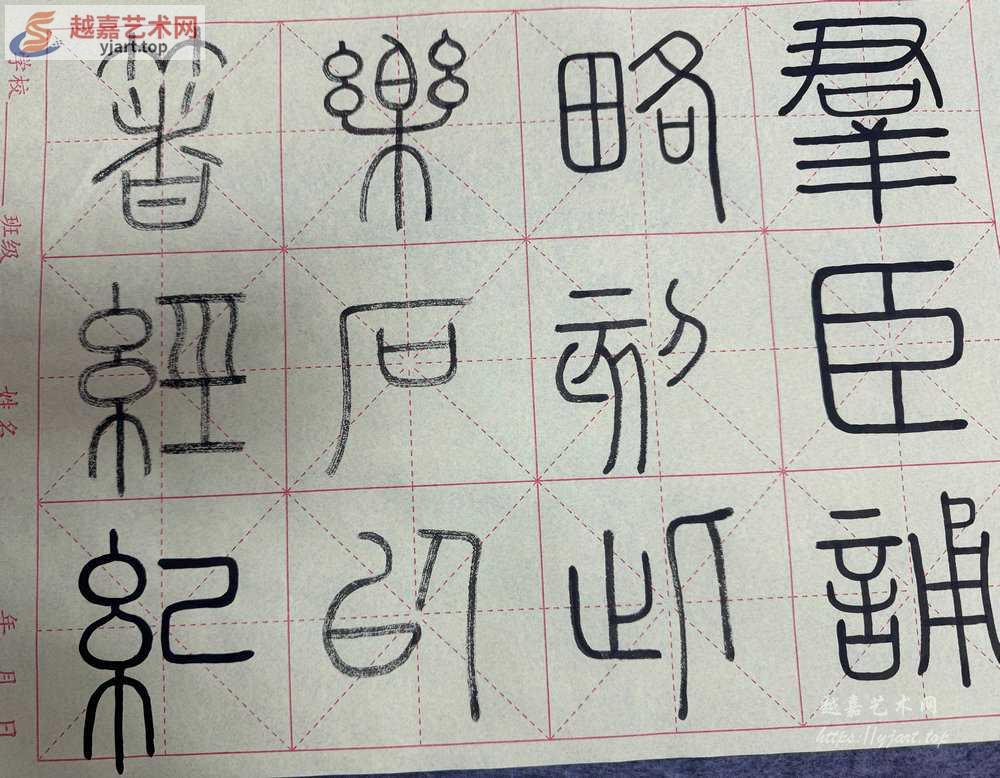 越嘉艺术网
yjart.top
羣臣誦
略刻此
樂石以
箸經紀
学校 班级 姓名 年 月 日
越嘉艺术网
https://yjart.top